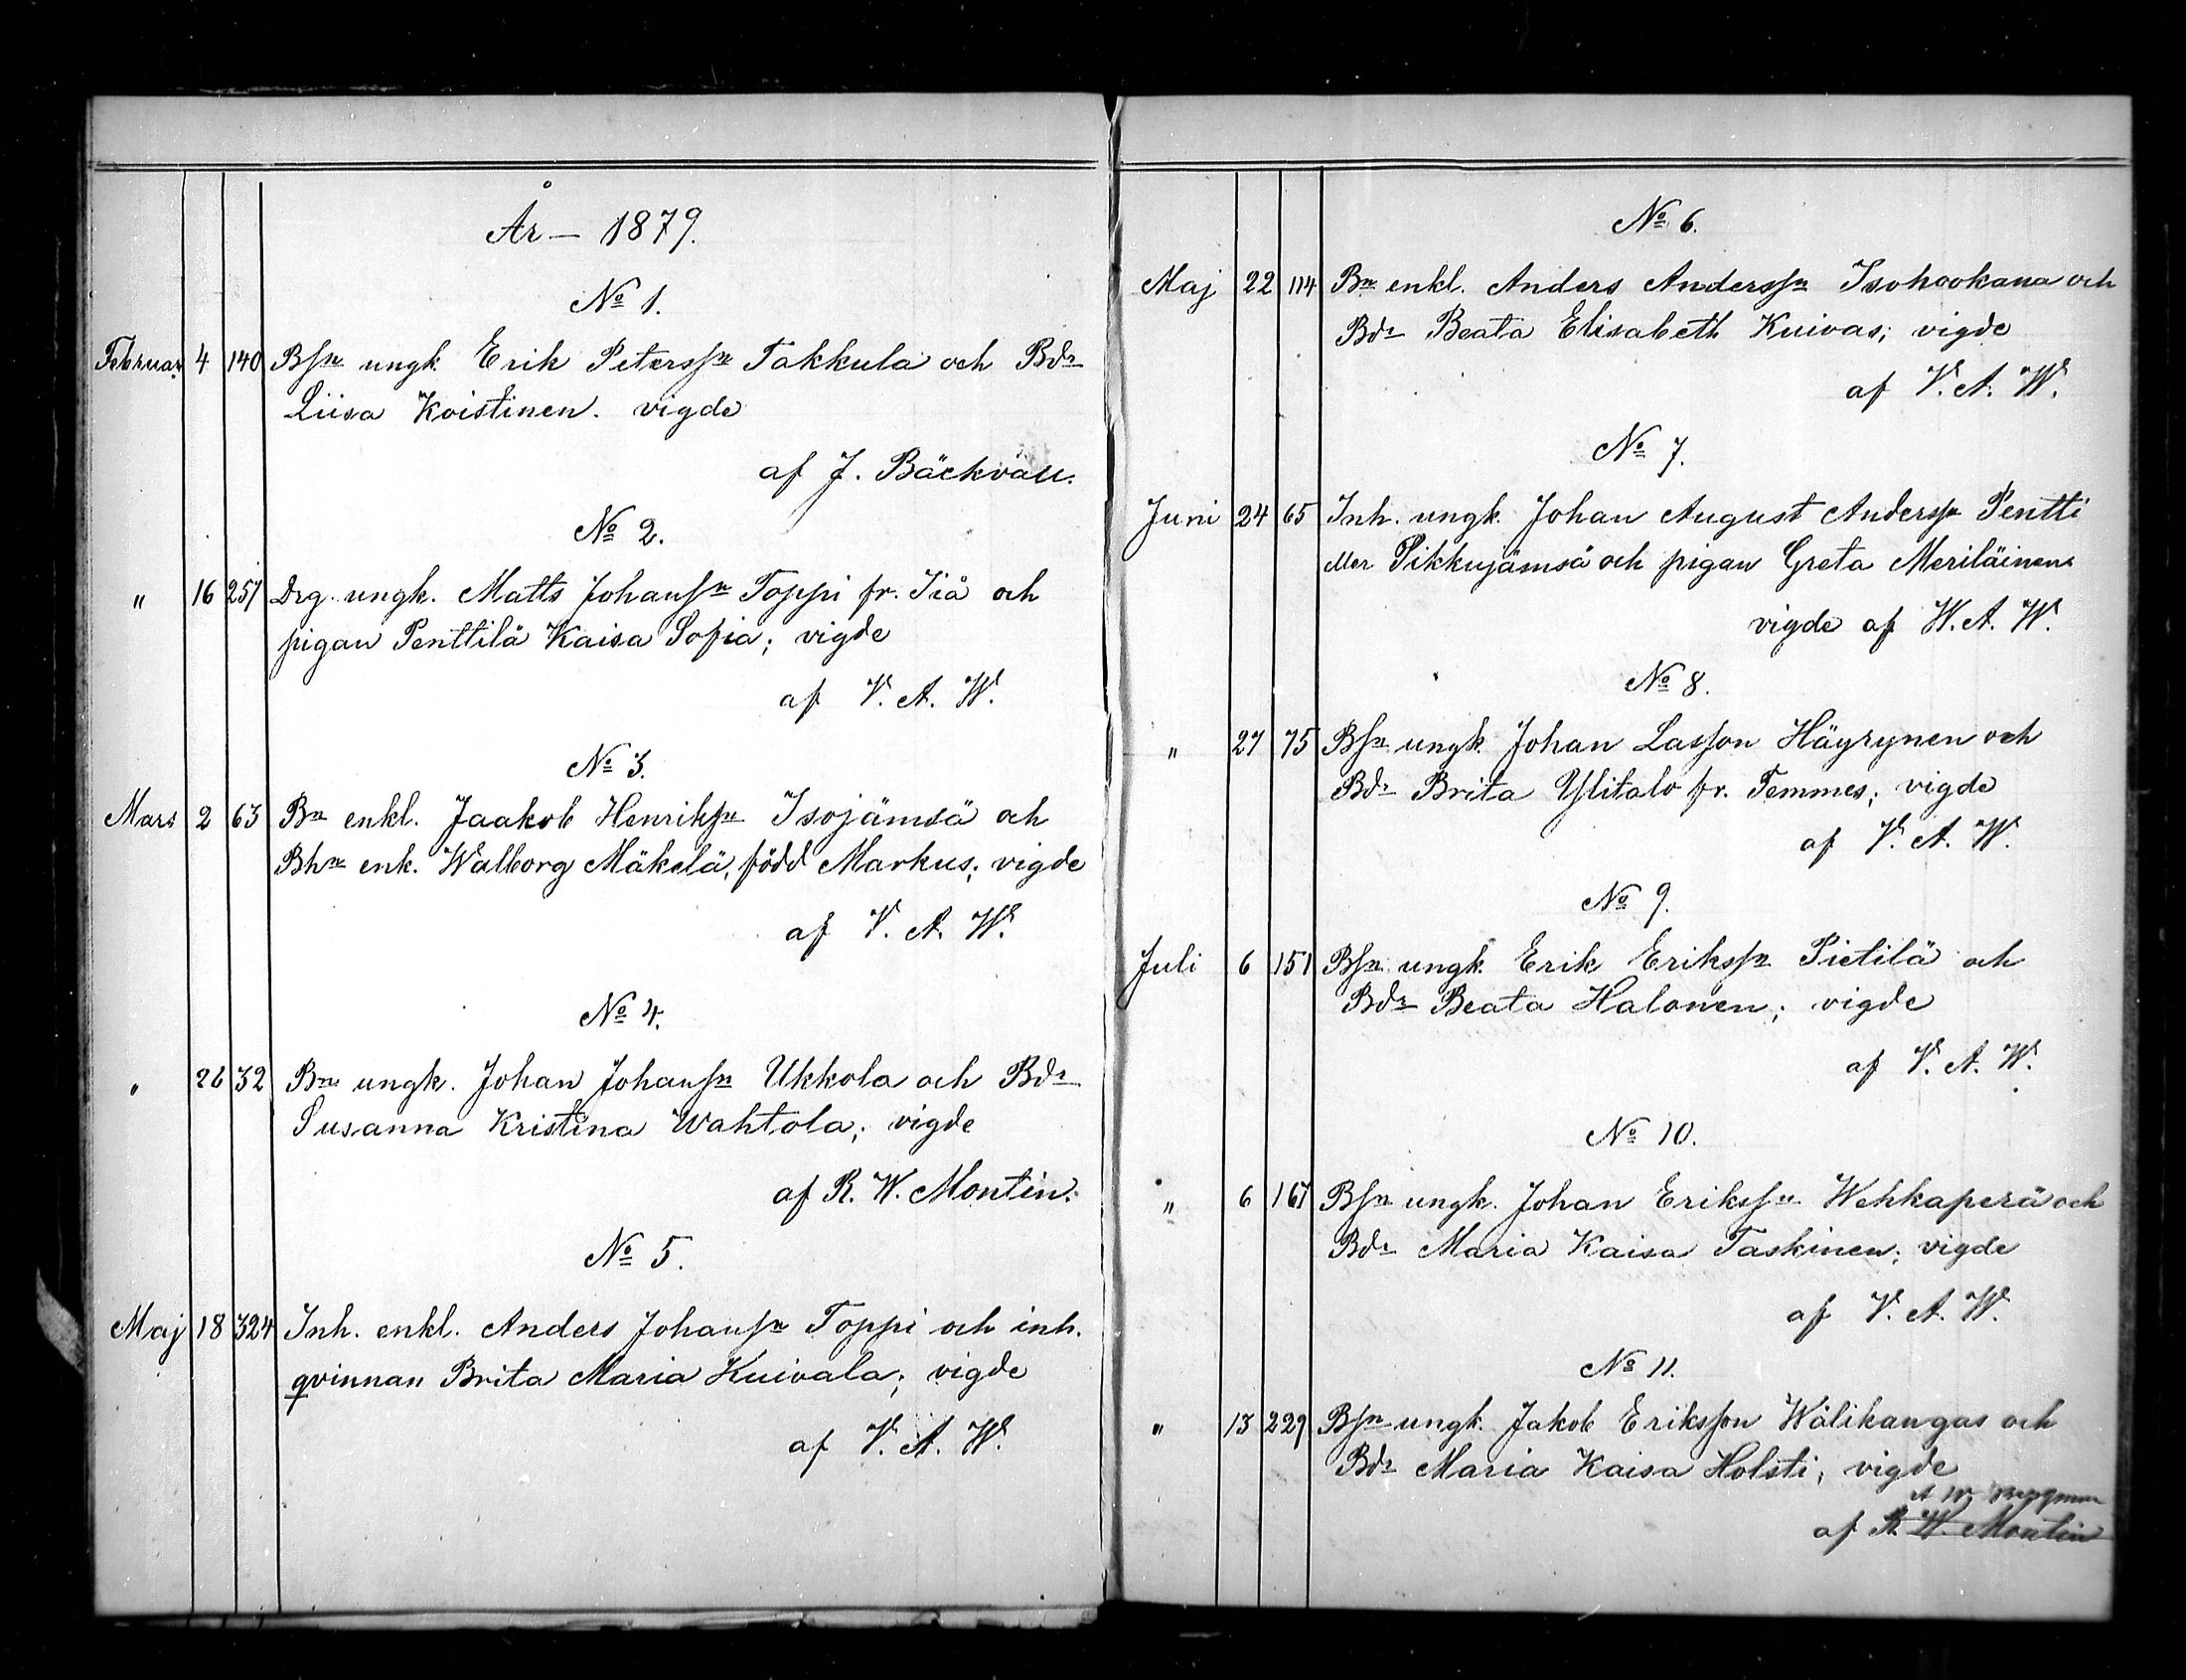 År – 1879.
No 1.
Februar. 4 140 Bsn ungk. Erik Peterssn Takkula och Bdr
Liisa Koistinen. vigde
af J. Bäckvall.
No 2.
" 16 257 Drg. ungk. Matts Johanssn Toppi fr. Iiå och
pigan Penttilä Kaisa Sofia; vigde
af V. A. W.
No 3.
Mars 2 63 Bn enkl. Jaakob Henrikssn Isojämsä och
Bhn enk. Walborg Mäkelä, född Markus; vigde
af V. A. W.
No 4.
" 26 32 Bn ungk. Johan Johanssn Ukkola och Bdr
Susanna Kristina Wahtola; vigde
af R. W. Montin.
No 5.
Maj 18 324 Inh. enkl. Anders Johanssn Toppi och inh.
qvinnan Brita Maria Kuivala; vigde
af V. A. W.
No 6.
Maj 22 114 Bn enkl. Anders Anderssn Isohookana och
Bdr Beata Elisabeth Kuivas; vigde
af V. A. W.
No 7.
Juni 24 65 Inh. ungk. Johan August Anderssn Pentti
eller Pikkujämsä och pigan Greta Meriläinen
vigde af W. A. W.
No 8.
" 27 75 Bsn ungk. Johan Lasson Häyrynen och
Bdr Brita Ylitalo fr. Temmes; vigde
af V. A. W.
No 9.
Juli 6 151 Bsn ungk. Erik Erikssn Pietilä och
Bdr Beata Halonen; vigde
af V. A. W.
No 10.
" 6 167 Bsn ungk. Johan Erikssn Wehkaperä och
Bdr Maria Kaisa Taskinen; vigde
af V. A. W.
No 11.
" 13 229 Bsn ungk. Jakob Eriksson Wälikangas och
Bdr Maria Kaisa Holsti; vigde
af R. W. Montin